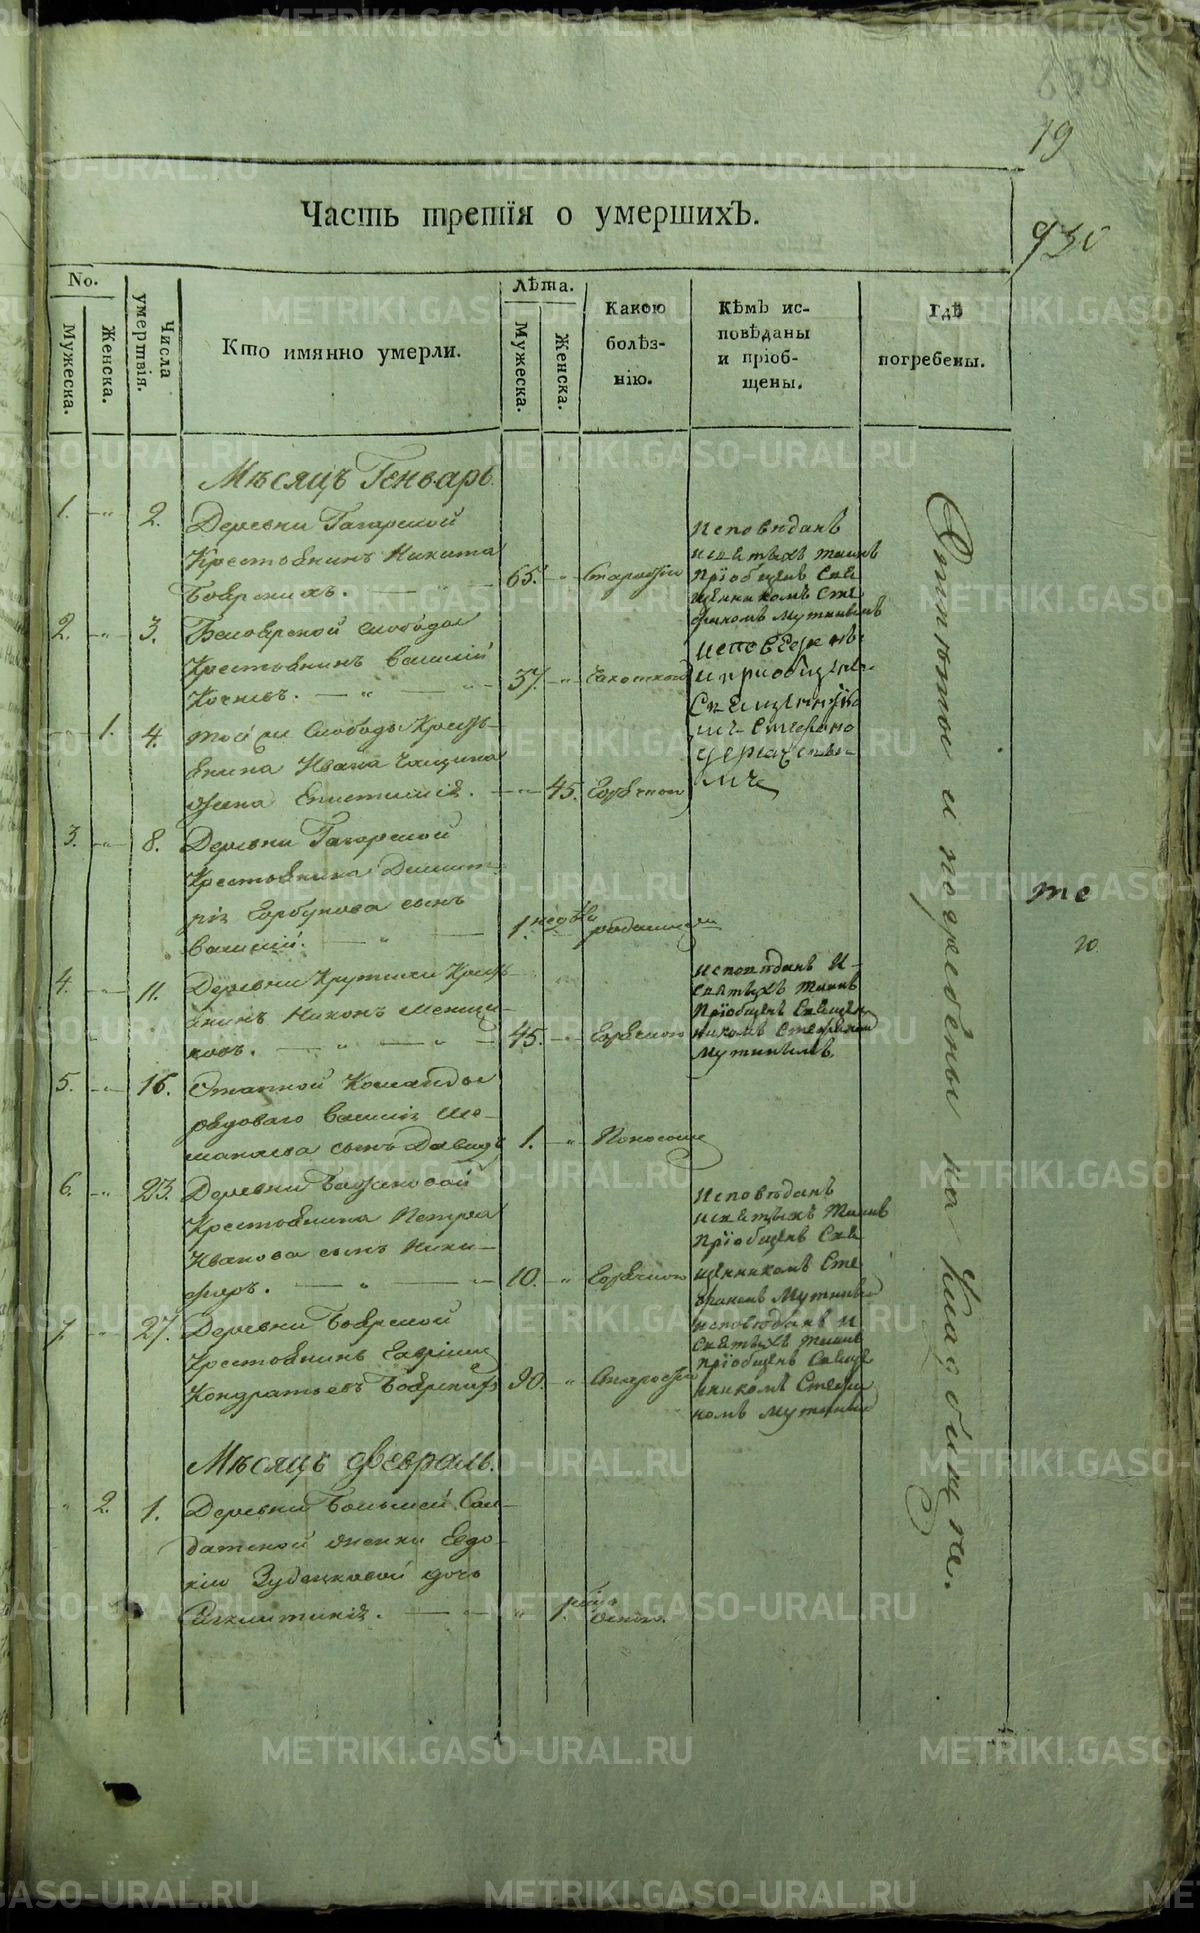 850
19
Часть третїя о умершихЪ.
930
No.
Мужеска.
Женска.
Числа умертвїя.
Кто имянно умерли.
Лѣта.
Мужеска.
Женска.
Какою болѣз-
нїю.
Кѣмъ ис-
повѣданы
и прїоб-
щены.
Гдѣ
погребены.
Мѣсяцъ Генварь.
1. 2. Деревни Гагарской
Крестьянинъ Никита
Боярскихъ. 65. Старостїю
Исповѣданъ
и святыхъ таинъ
прїобщенъ Свя
щенникомъ Сте
фаномъ Мутинымъ
2. 3. Белоярской слободы
Крестьянинъ Василий
37. Чахоткою
исповѣданъ
и приобщенъ
Священнико
мъ Стефано
мъ
1. 4. той же Слободы Кресть-
янина Ивана
жена 45. Горячкою
3. 8. Деревни Гагарской
Крестьянина Димит-
рїя Горбунова сынъ
Василий. 1. недѣль родимцемъ
4. 11. Деревни Крутихи Кресть
янинъ Никонъ Менщи-
ковъ. 45. Горячкою
Исповѣданъ и
святыхъ таинъ
прїобщенъ Священ
никомъ Стефаномъ
Мутинымъ.
5. 16. Этапной Команды
рядоваго Василїя
сынъ Давидъ 1. Поносомъ
6. 23. Деревни Баженовой
Крестьянина Петра
Иванова сынъ Ники-
форъ. 10. Горячкою
Исповѣданъ
и святыхъ таинъ
прїобщенъ Свя
щенникомъ Сте
фаномъ Мутинымъ
7. 27. Деревни Боярской
Крестьянинъ
Кондратьевъ Боярскихъ 90. Старостїю
исповѣданъ и
святыхъ таинъ
прїобщенъ Свяще
нникомъ Стефа
номъ Мутинымъ
Мѣсяцъ Февраль.
2. 1. Деревни Большей Сол-
датской женки Евдо-
кїи Зубенковой дочь
1. Оспою.
Отпѣтое и погребены на Кладбище.
те
20
METRIKI.GASO-URAL.RU